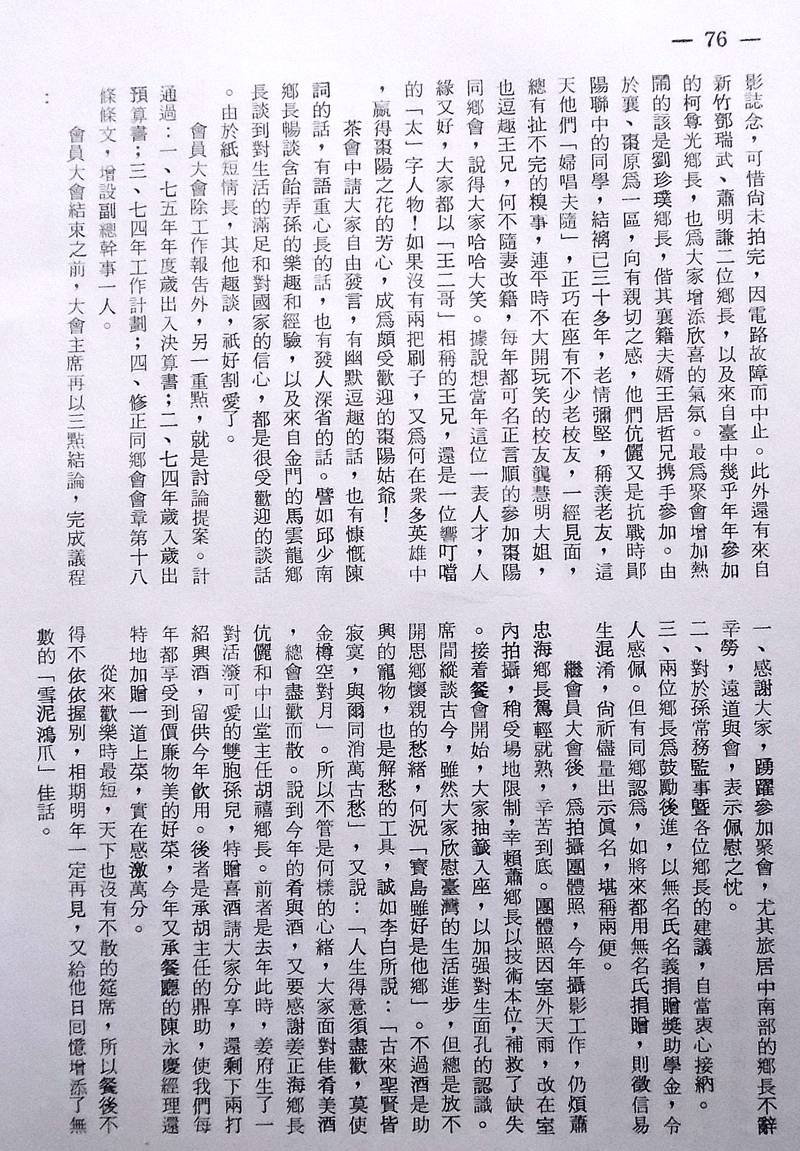 — 76 —
影誌念，可惜尚未拍完，因電路故障而中止。此外還有來自
新竹鄧瑞武、蕭明謙二位鄉長，以及來自臺中幾乎年年參加
的柯尊光鄉長，也爲大家增添欣喜的氣氛。最爲聚會增加熱
鬧的該是劉珍璞鄉長，偕其襄籍夫婿王居哲兄携手參加。由
於襄、棗原爲一區，向有親切之感，他們伉儷又是抗戰時鄖
陽聯中的同學，結褵已三十多年，老情彌堅，稱羨老友，這
天他們「婦唱夫隨」，正巧在座有不少老校友，一經見面，
總有扯不完的糗事，連平時不大開玩笑的校友龔慧明大姐，
也逗趣王兄，何不隨妻改籍，每年都可名正言順的參加棗陽
同鄉會，說得大家哈哈大笑。據說想當年這位一表人才，人
緣又好，大家都以「王二哥」相稱的王兄，還是一位響叮噹
的「太」字人物！如果沒有兩把刷子，又爲何在衆多英雄中
，贏得棗陽之花的芳心，成爲頗受歡迎的棗陽姑爺！
茶會中請大家自由發言，有幽默逗趣的話，也有慷慨陳
詞的話，有語重心長的話，也有發人深省的話。譬如邱少南
鄉長暢談含飴弄孫的樂趣和經驗，以及來自金門的馬雲龍鄉
長談到對生活的滿足和對國家的信心，都是很受歡迎的談話
。由於紙短情長，其他趣談，祇好割愛了。
會員大會除工作報告外，另一重點，就是討論提案。計
通過：一、七五年年度歲出入決算書；二、七四年歲入歲出
預算書；三、七四年工作計劃；四、修正同鄉會會章第十八
條條文，增設副總幹事一人。
會員大會結束之前，大會主席再以三點結論，完成議程
：
一、感謝大家，踴躍參加聚會，尤其旅居中南部的鄉長不辭
辛勞，遠道與會，表示佩慰之忱。
二、對於孫常務監事暨各位鄉長的建議，自當衷心接納。
三、兩位鄉長爲鼓勵後進，以無名氏名義捐贈獎助學金，令
人感佩。但有同鄉認爲，如將來都用無名氏捐贈，則徵信易
生混淆，尙祈儘量出示眞名，堪稱兩便。
繼會員大會後，爲拍攝團體照，今年攝影工作，仍煩蕭
忠海鄉長駕輕就熟，辛苦到底。團體照因室外天雨，改在室
內拍攝，稍受場地限制，幸賴蕭鄉長以技術本位，補救了缺失
。接着餐會開始，大家抽籤入座，以加强對生面孔的認識。
席間縱談古今，雖然大家欣慰臺灣的生活進步，但總是放不
開思鄉懷親的愁緒，何況「寶島雖好是他鄉」。不過酒是助
興的寵物，也是解愁的工具，誠如李白所說：「古來聖賢皆
寂寞，與爾同消萬古愁」，又說：「人生得意須盡歡，莫使
金樽空對月」。所以不管是何樣的心緒，大家面對佳肴美酒
，總會盡歡而散。說到今年的肴與酒，又要感謝姜正海鄉長
伉儷和中山堂主任胡禧鄉長。前者是去年此時，姜府生了一
對活潑可愛的雙胞孫兒，特贈喜酒請大家分享，還剩下兩打
紹興酒，留供今年飲用。後者是承胡主任的鼎助，使我們每
年都享受到價廉物美的好菜，今年又承餐廳的陳永慶經理還
特地加贈一道上菜，實在感激萬分。
從來歡樂時最短，天下也沒有不散的筵席，所以餐後不
得不依依握別，相期明年一定再見，又給他日回憶增添了無
數的「雪泥鴻爪」佳話。